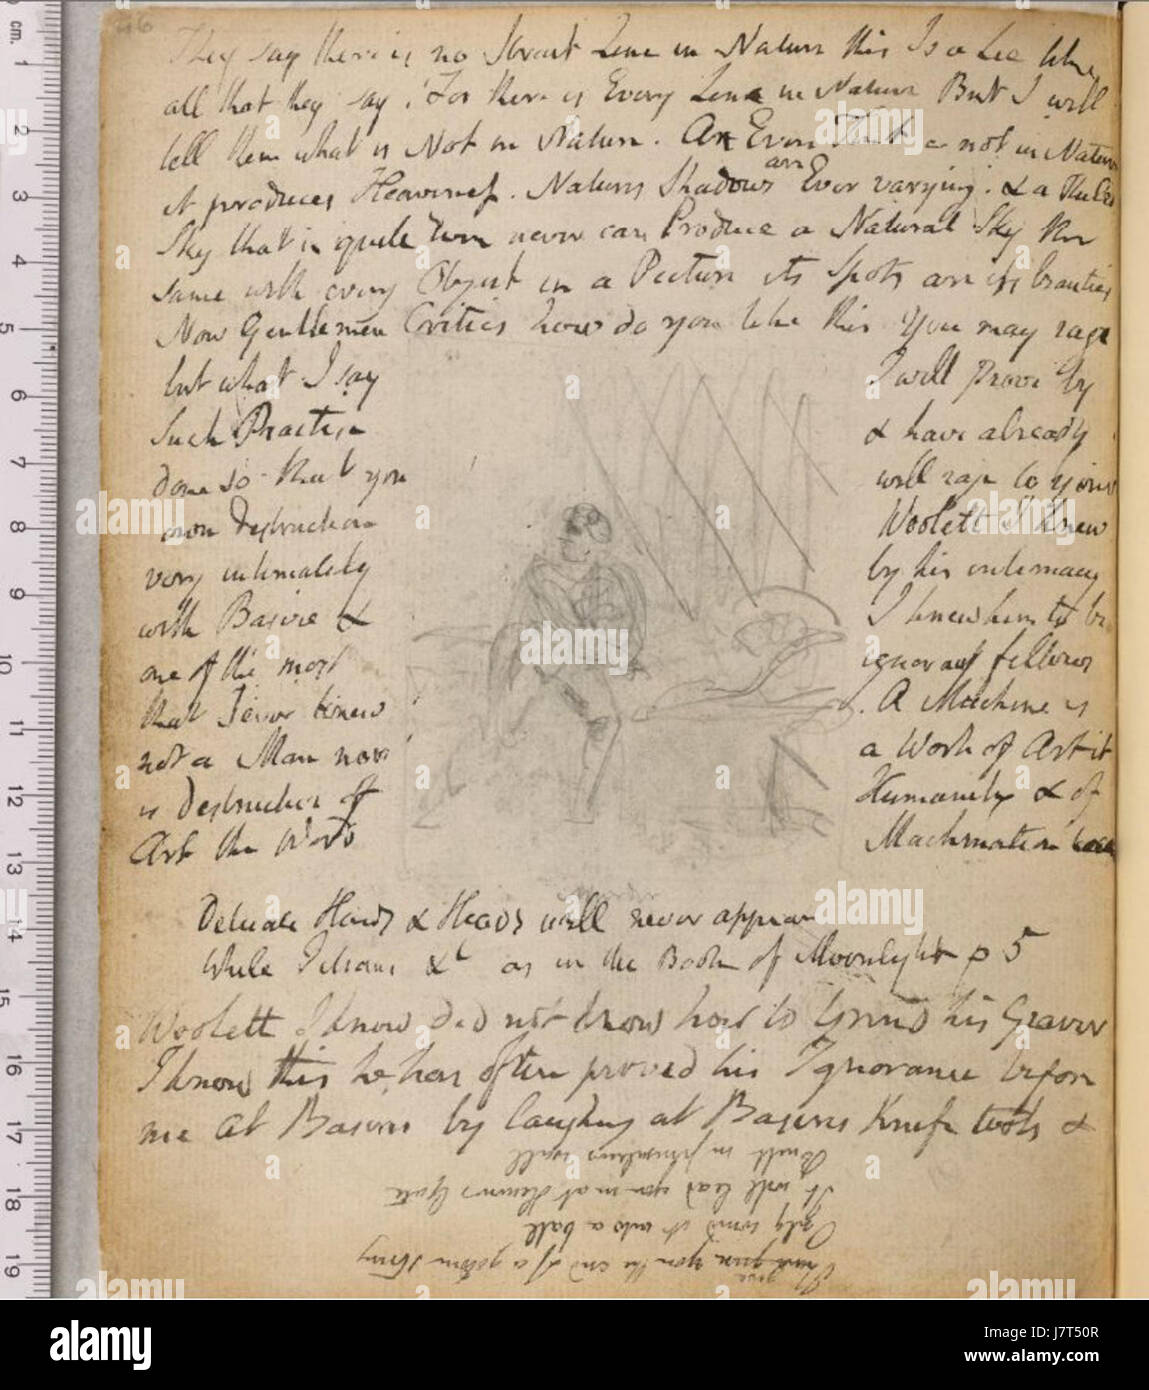 46
They say there is no Strait Line in Nature this Is a Lie like
all that they say, For there is Every Line in Nature But I will
tell them what is Not in Nature. An Even Tint is not in Nature
it produces Heaviness. Natures Shadows are Ever varying. & a Ruled
Sky that is quite Even never can Produce a Natural Sky the
same with every Object in a Picture its Spots are its beauties
Now Gentlemen Critics how do you like this You may rage
but what I say I will prove by
Such Practise & have already
done so that you will rage to your
own destruction Woolett I knew
very intimately by his intimacy
with Basire & I knew him to be
one of the most ignorant fellows
that I ever knew . A Machine is
not a Man nor a Work of Art it
is Destructive of Humanity & of
Art the Word Machination
Delicate Hands & Heads will never appear
While Titians &c as in the Book of Moonlight p 5
Woolett I know did not know how to Grind his Graver
I know this he has often proved his Ignorance before
me at Basires by laughing at Basires Knife tools &
I give you the end of a golden string
Only wind it into a ball
It will lead you in at Heavens Gate
Built in Jerusalems wall
cm. 1 2 3 4 5 6 7 8 9 10 11 12 13 14 15 16 17 18 19
alamy
alamy
Image ID: J7T50R
www.alamy.com